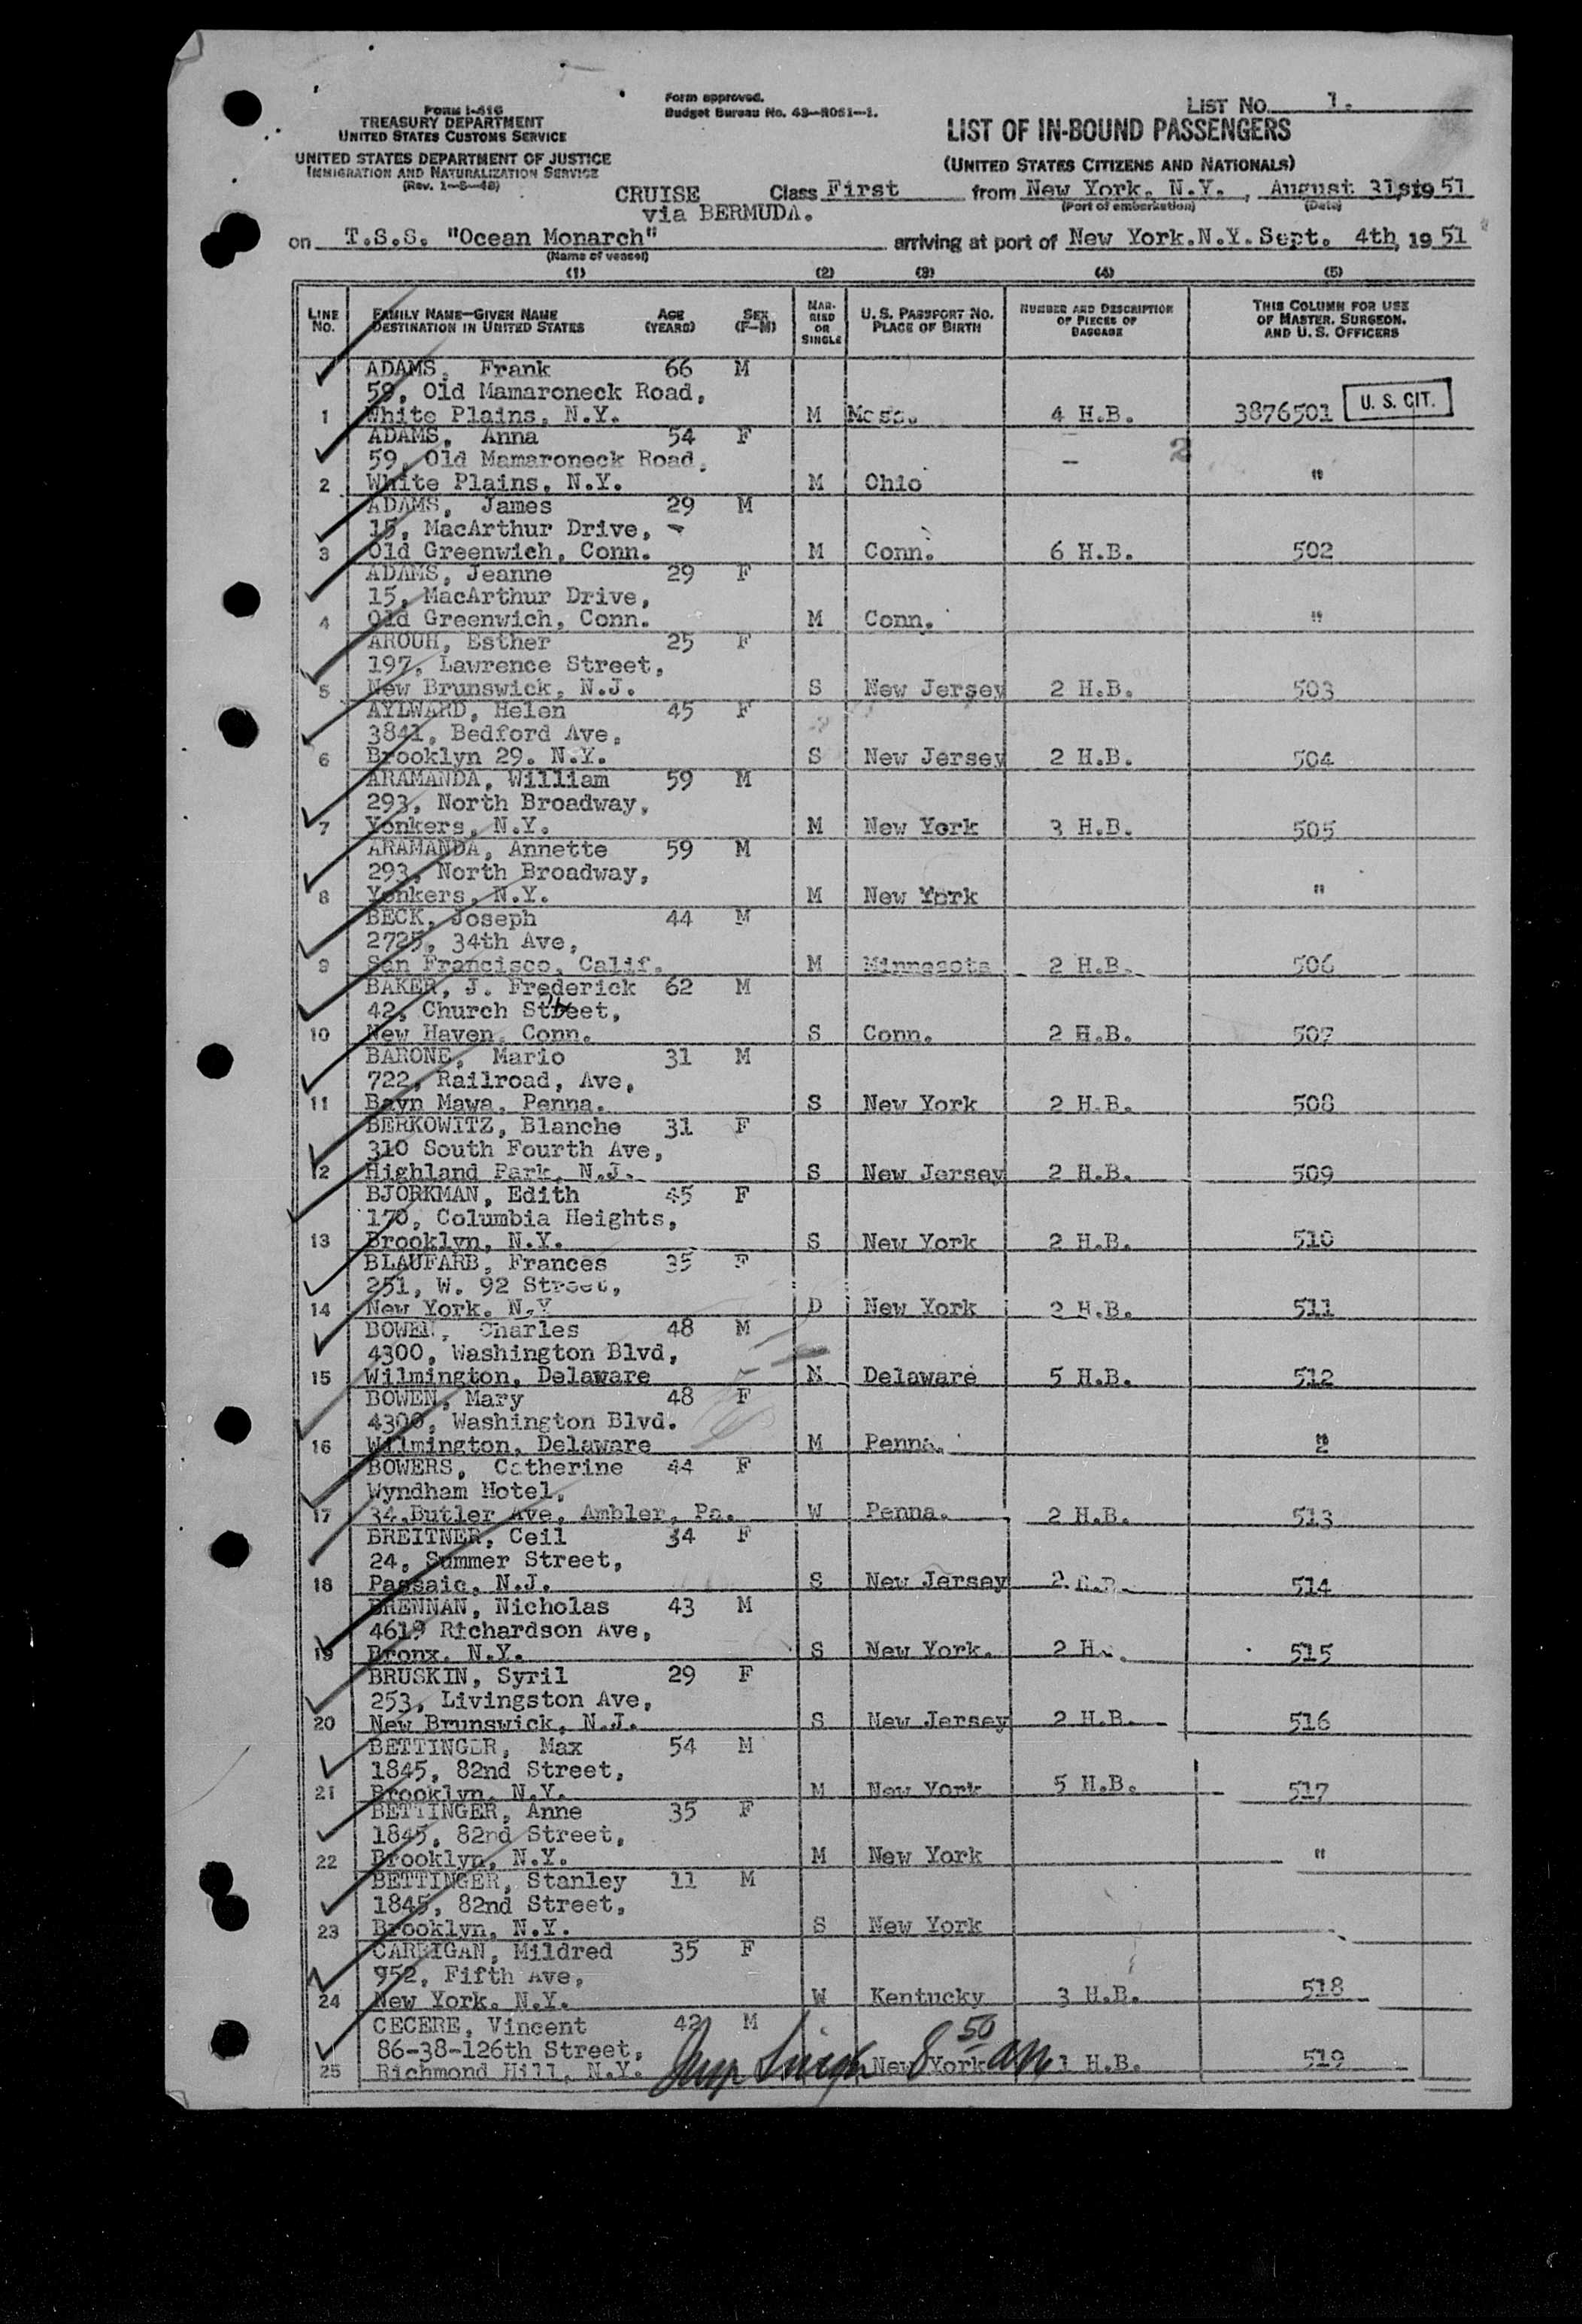 LIST NO. 1.
Form I-416
TREASURY DEPARTMENT
UNITED STATES CUSTOMS SERVICE
UNITED STATES DEPARTMENT OF JUSTICE
IMMIGRATION AND NATURALIZATION SERVICE
(Rev. 1-5-48)
Form approved.
Budget Bureau No. 43-R051-1.
LIST OF IN-BOUND PASSENGERS
(UNITED STATES CITIZENS AND NATIONALS)
CRUISE Class First from New York. N.Y., August 31,st1951
via BERMUDA. (Port of embarkation) (Date)
on T.S.S. "Ocean Monarch" arriving at port of New York.N.Y. Sept. 4th, 1951
(Name of vessel)
(1) (2) (3) (4) (5)
LINE NO. FAMILY NAME—GIVEN NAME DESTINATION IN UNITED STATES AGE (YEARS) SEX (F-M) MARRIED OR SINGLE U.S. PASSPORT NO. PLACE OF BIRTH NUMBER AND DESCRIPTION OF PIECES OF BAGGAGE THIS COLUMN FOR USE OF MASTER, SURGEON, AND U.S. OFFICERS
ADAMS, Frank 66 M
59, Old Mamaroneck Road,
1 White Plains, N.Y. M Mass. 4 H.B. 3876501 U. S. CIT.
ADAMS, Anna 54 F
59, Old Mamaroneck Road, – 2
2 White Plains, N.Y. M Ohio "
ADAMS, James 29 M
15, MacArthur Drive,
3 Old Greenwich, Conn. M Conn. 6 H.B. 502
ADAMS, Jeanne 29 F
15, MacArthur Drive,
4 Old Greenwich, Conn. M Conn. "
AROUH, Esther 25 F
197, Lawrence Street,
5 New Brunswick, N.J. S New Jersey 2 H.B. 503
AYLWARD, Helen 45 F
3841, Bedford Ave,
6 Brooklyn 29. N.Y. S New Jersey 2 H.B. 504
ARAMANDA, William 59 M
293, North Broadway,
7 Yonkers, N.Y. M New York 3 H.B. 505
ARAMANDA, Annette 59 M
293, North Broadway,
8 Yonkers, N.Y. M New York "
BECK, Joseph 44 M
2725, 34th Ave,
9 San Francisco, Calif. M Minnesota 2 H.B. 506
BAKER, J. Frederick 62 M
42, Church Street,
10 New Haven, Conn. S Conn. 2 H.B. 507
BARONE, Mario 31 M
722, Railroad, Ave,
11 Bayn Mawa, Penna. S New York 2 H.B. 508
BERKOWITZ, Blanche 31 F
310 South Fourth Ave,
12 Highland Park, N.J. S New Jersey 2 H.B. 509
BJORKMAN, Edith 45 F
170, Columbia Heights,
13 Brooklyn, N.Y. S New York 2 H.B. 510
BLAUFARB, Frances 35 F
251, W. 92 Street,
14 New York. N.Y D New York 2 H.B. 511
BOWEN, Charles 48 M
4300, Washington Blvd,
15 Wilmington, Delaware M Delaware 5 H.B. 512
BOWEN, Mary 48 F
4300, Washington Blvd.
16 Wilmington, Delaware M Penna. "
BOWERS, Catherine 44 F
Wyndham Hotel,
17 34,Butler Ave, Ambler, Pa. W Penna. 2 H.B. 513
BREITNER, Ceil 34 F
24, Summer Street,
18 Passaic, N.J. S New Jersey 2 H.B. 514
BRENNAN, Nicholas 43 M
4619 Richardson Ave,
19 Bronx. N.Y. S New York. 2 H. 515
BRUSKIN, Syril 29 F
253, Livingston Ave,
20 New Brunswick, N.J. S New Jersey 2 H.B. 516
BETTINGER, Max 54 M
1845, 82nd Street,
21 Brooklyn, N.Y. M New York 5 H.B. 517
BETTINGER, Anne 35 F
1845, 82nd Street,
22 Brooklyn, N.Y. M New York "
BETTINGER, Stanley 11 M
1845, 82nd Street,
23 Brooklyn, N.Y. S New York
CARRIGAN, Mildred 35 F
952, Fifth Ave,
24 New York. N.Y. W Kentucky 3 H.B. 518
CECERE, Vincent 42 M
86-38-126th Street, 8 50 am
25 Richmond Hill, N.Y. New York 1 H.B. 519